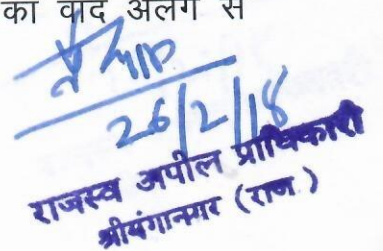 का वाद अलग से
26/2/18
राजस्व अपील प्राधिकारी
श्रीगंगानगर (राज.)